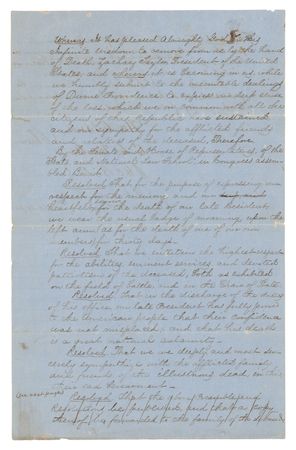 Whereas It has pleased Almighty God in His
Infinite wisdom to remove from us by the hand
of Death, Zachary Taylor President of the United
States, and whereas it is becoming in us, while
we humbly submit to the inscrutable dealings
of Divine Providence to express our deep sense
of the loss, which we in common with all the
citizens of this Republic have sustained
and our sympathy for the afflicted friends
and relatives of the deceased, Therefore
By the Senate and House of Representatives, of the
State and National Law School in Congress assem
bled Be it
Resolved That for the purpose of expressing our
respect for the memory and our
for the death of our late President
we wear the usual badge of mourning upon the
left arm as for the death of one of our
members for thirty days.
Resolved That we entertain the highest respect
for the abilities, eminent services, and devoted
patriotism of the deceased, both as exhibited
on the field of battle, and in the Chair of State
Resolved That in the discharge of the duties
of his office our late President has fully proved
to the American people that their confidence
was not misplaced, and that his death
is a great national calamity.
Resolved That we deeply and most sin
cerely sympathize with the afflicted family
and friends of the illustrious dead, in this
their sad bereavement.
Resolved That the foregoing
Resolutions be published and that a copy
thereof be forwarded to the family of the deceased